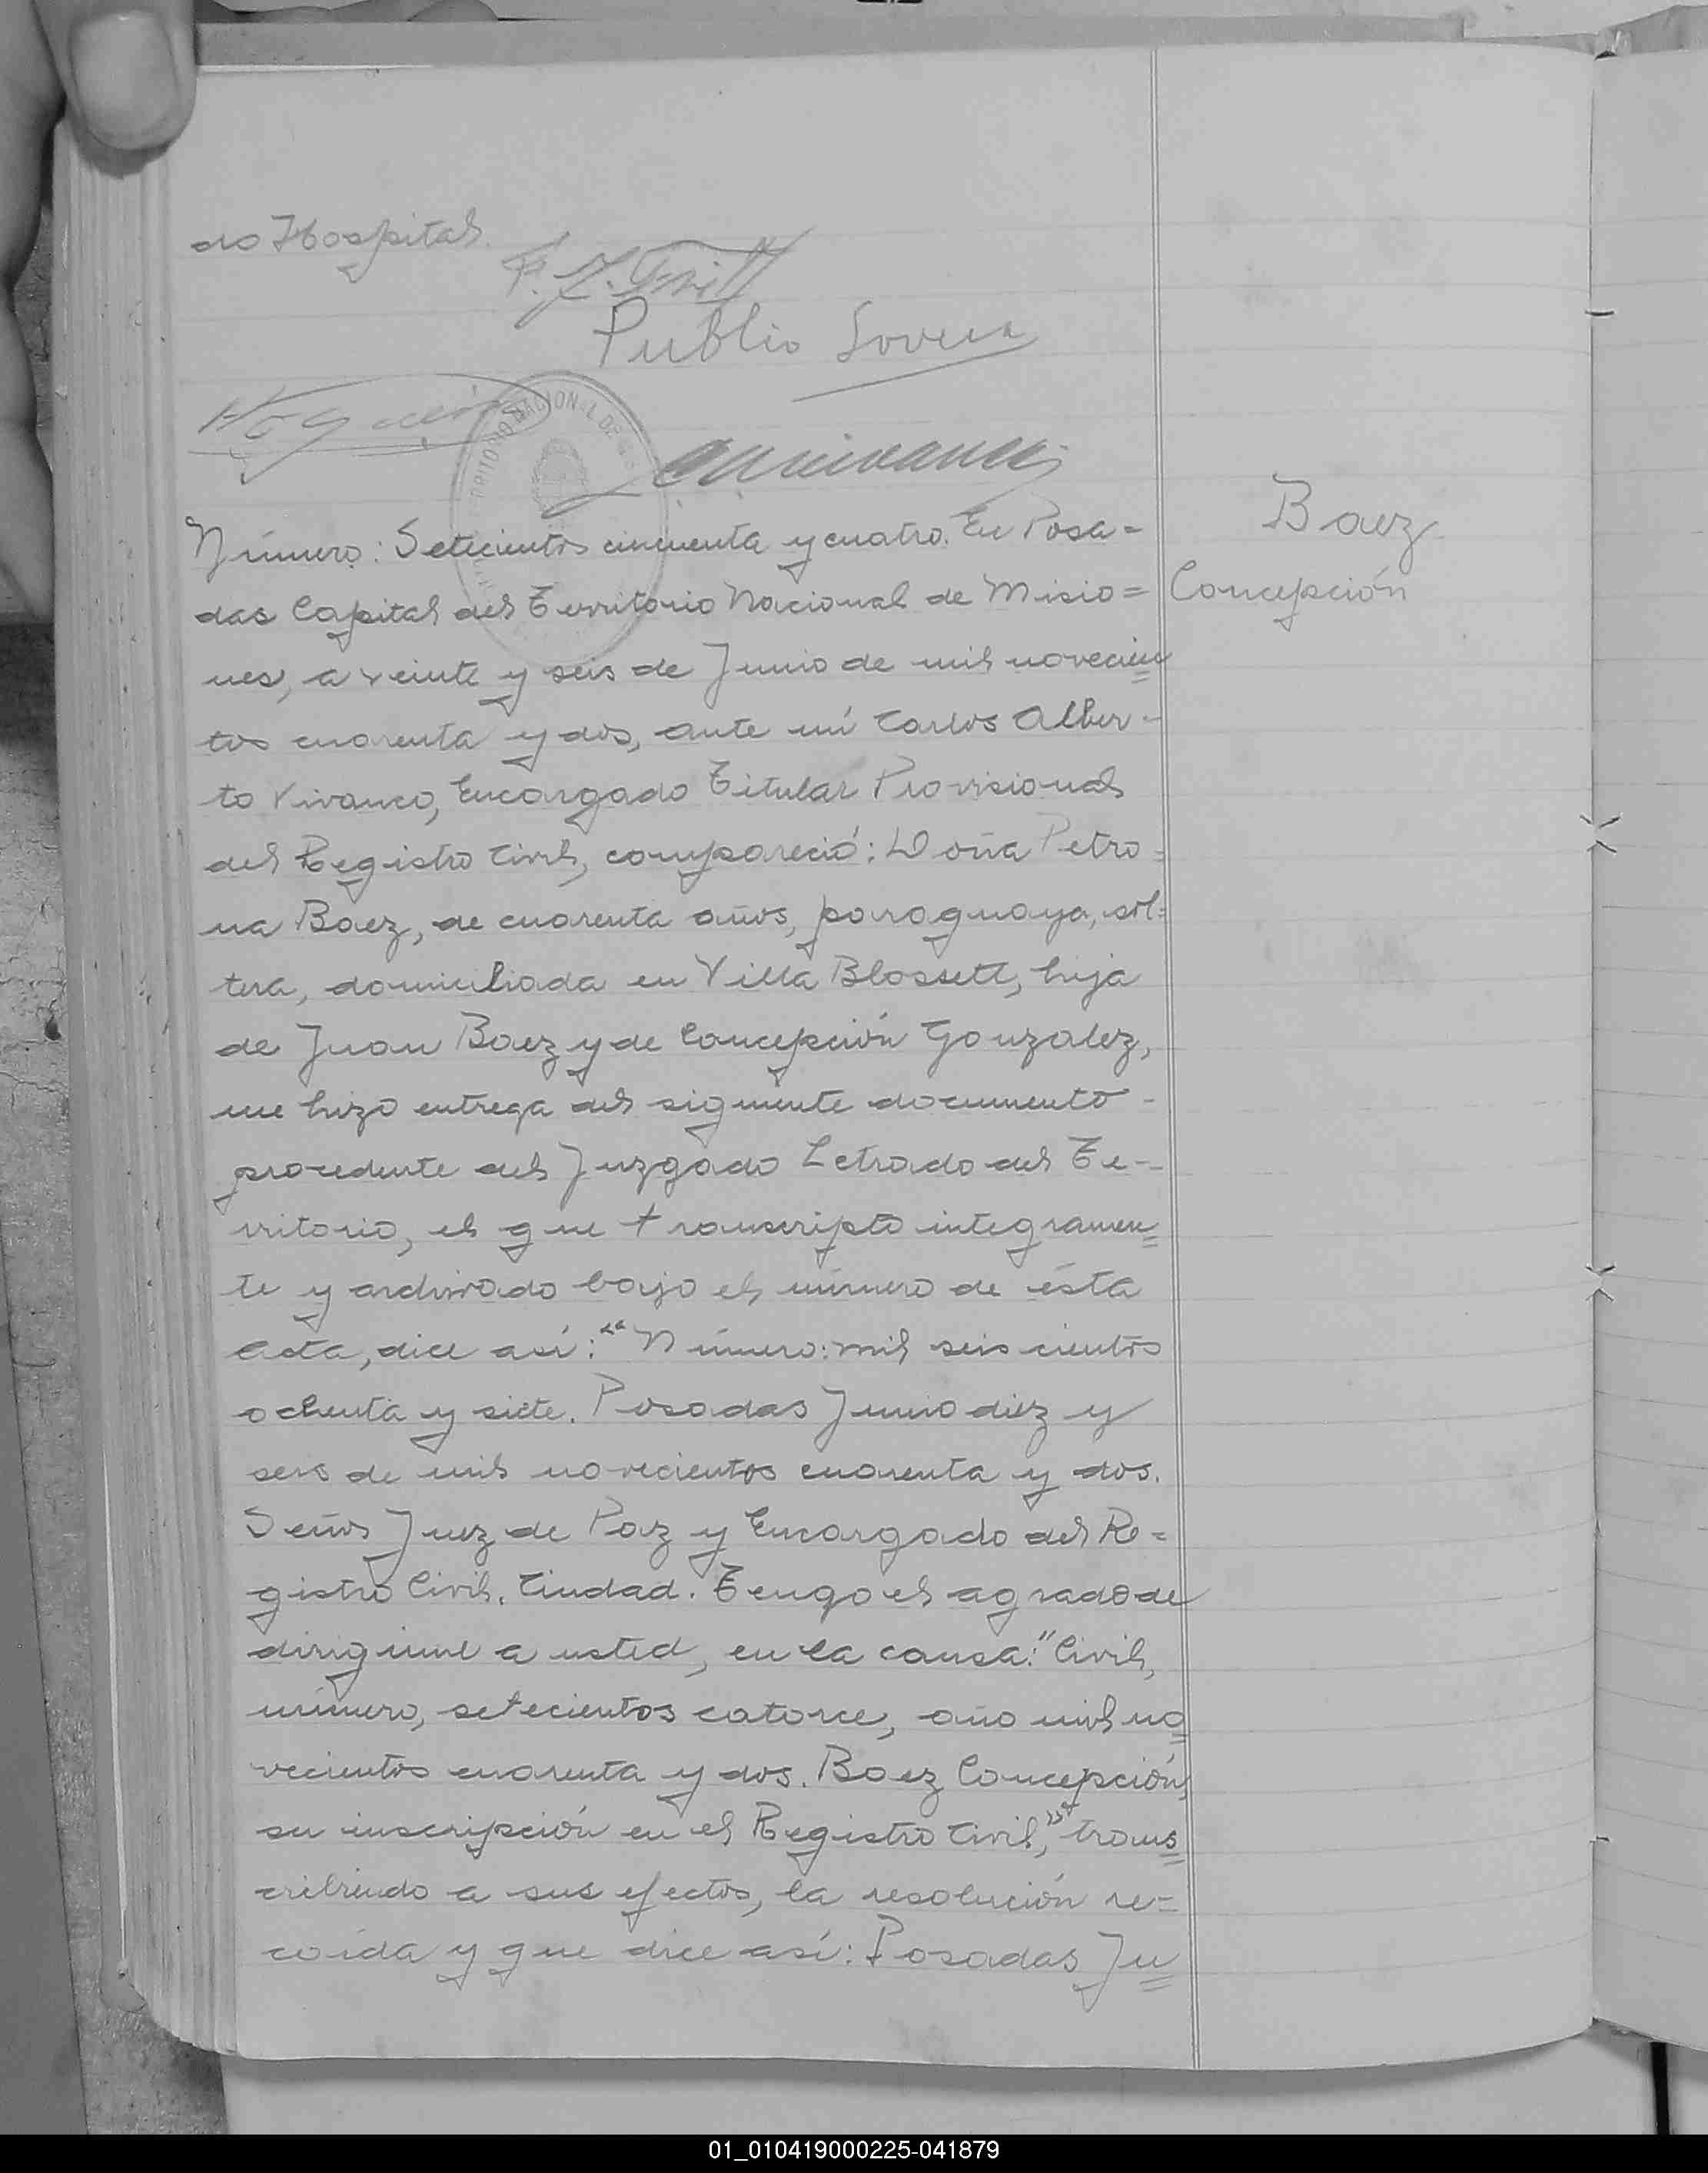 do Hospital.
Publio
Número: Setecientos cincuenta y cuatro. En Posa=
Baez
das Capital del Territorio Nacional de Misio=
Concepción
nes, a veinte y seis de Junio de mil novecien=
tos cuarenta y dos, ante mí Carlos Alber-
to Vivanco, Encargado Titular Provisional
del Registro Civil, compareció: Doña Petro=
na Baez, de cuarenta años, paraguaya, sol=
tera, domiciliada en Villa Blossett, hija
de Juan Baez y de Concepción Gonzalez,
me hizo entrega del siguiente documento -
procedente del Juzgado Letrado del Te--
rritorio, el que transcripto integramen=
te y archivado bajo el número de ésta
acta, dice así: "Número: mil seiscientos
ochenta y siete. Posadas Junio diez y
seis de mil novecientos cuarenta y dos.
Señor Juez de Paz y Encargado del Re=
gistro Civil. Ciudad. Tengo el agrado de
dirigirme a usted, en la causa: "Civil,
número, setecientos catorce, año mil no=
vecientos cuarenta y dos. Baez Concepción,
su inscripción en el Registro Civil," trans=
cribiendo a sus efectos, la resolución re=
caída y que dice así: Posadas Ju=
01_010419000225-041879